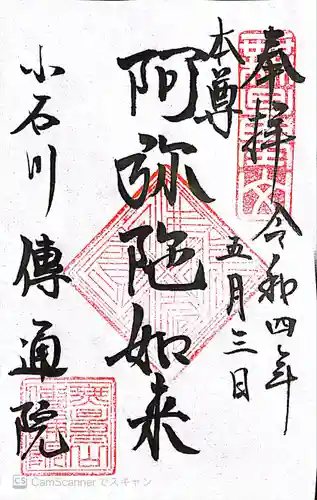 奉拝 令和四年
五月三日
本尊
阿弥陀如来
小石川 傳通院
CS CamScanner でスキャン